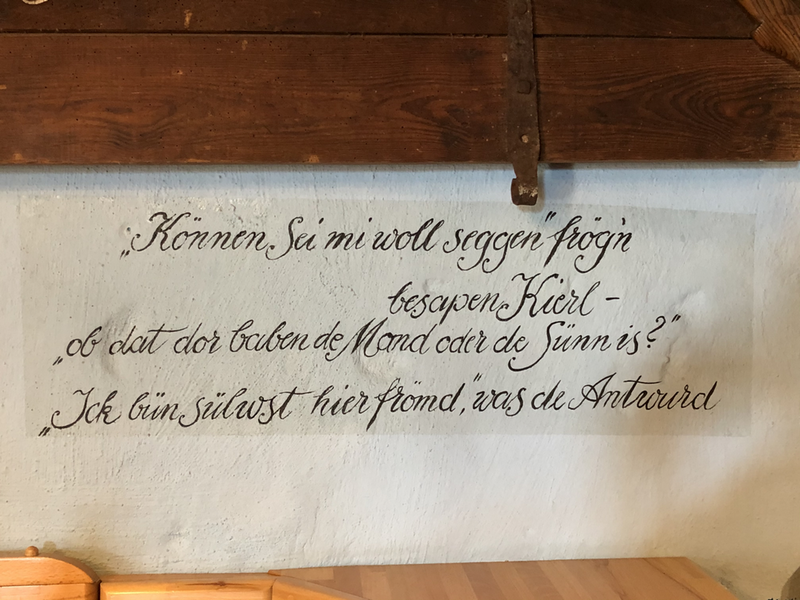 „Können Sei mi woll seggen" frög'n
besapen Kierl –
„ob dat dor baben de Mand oder de Sünn is?"
„Ick bün sülwst hier frömd," was de Antwurd